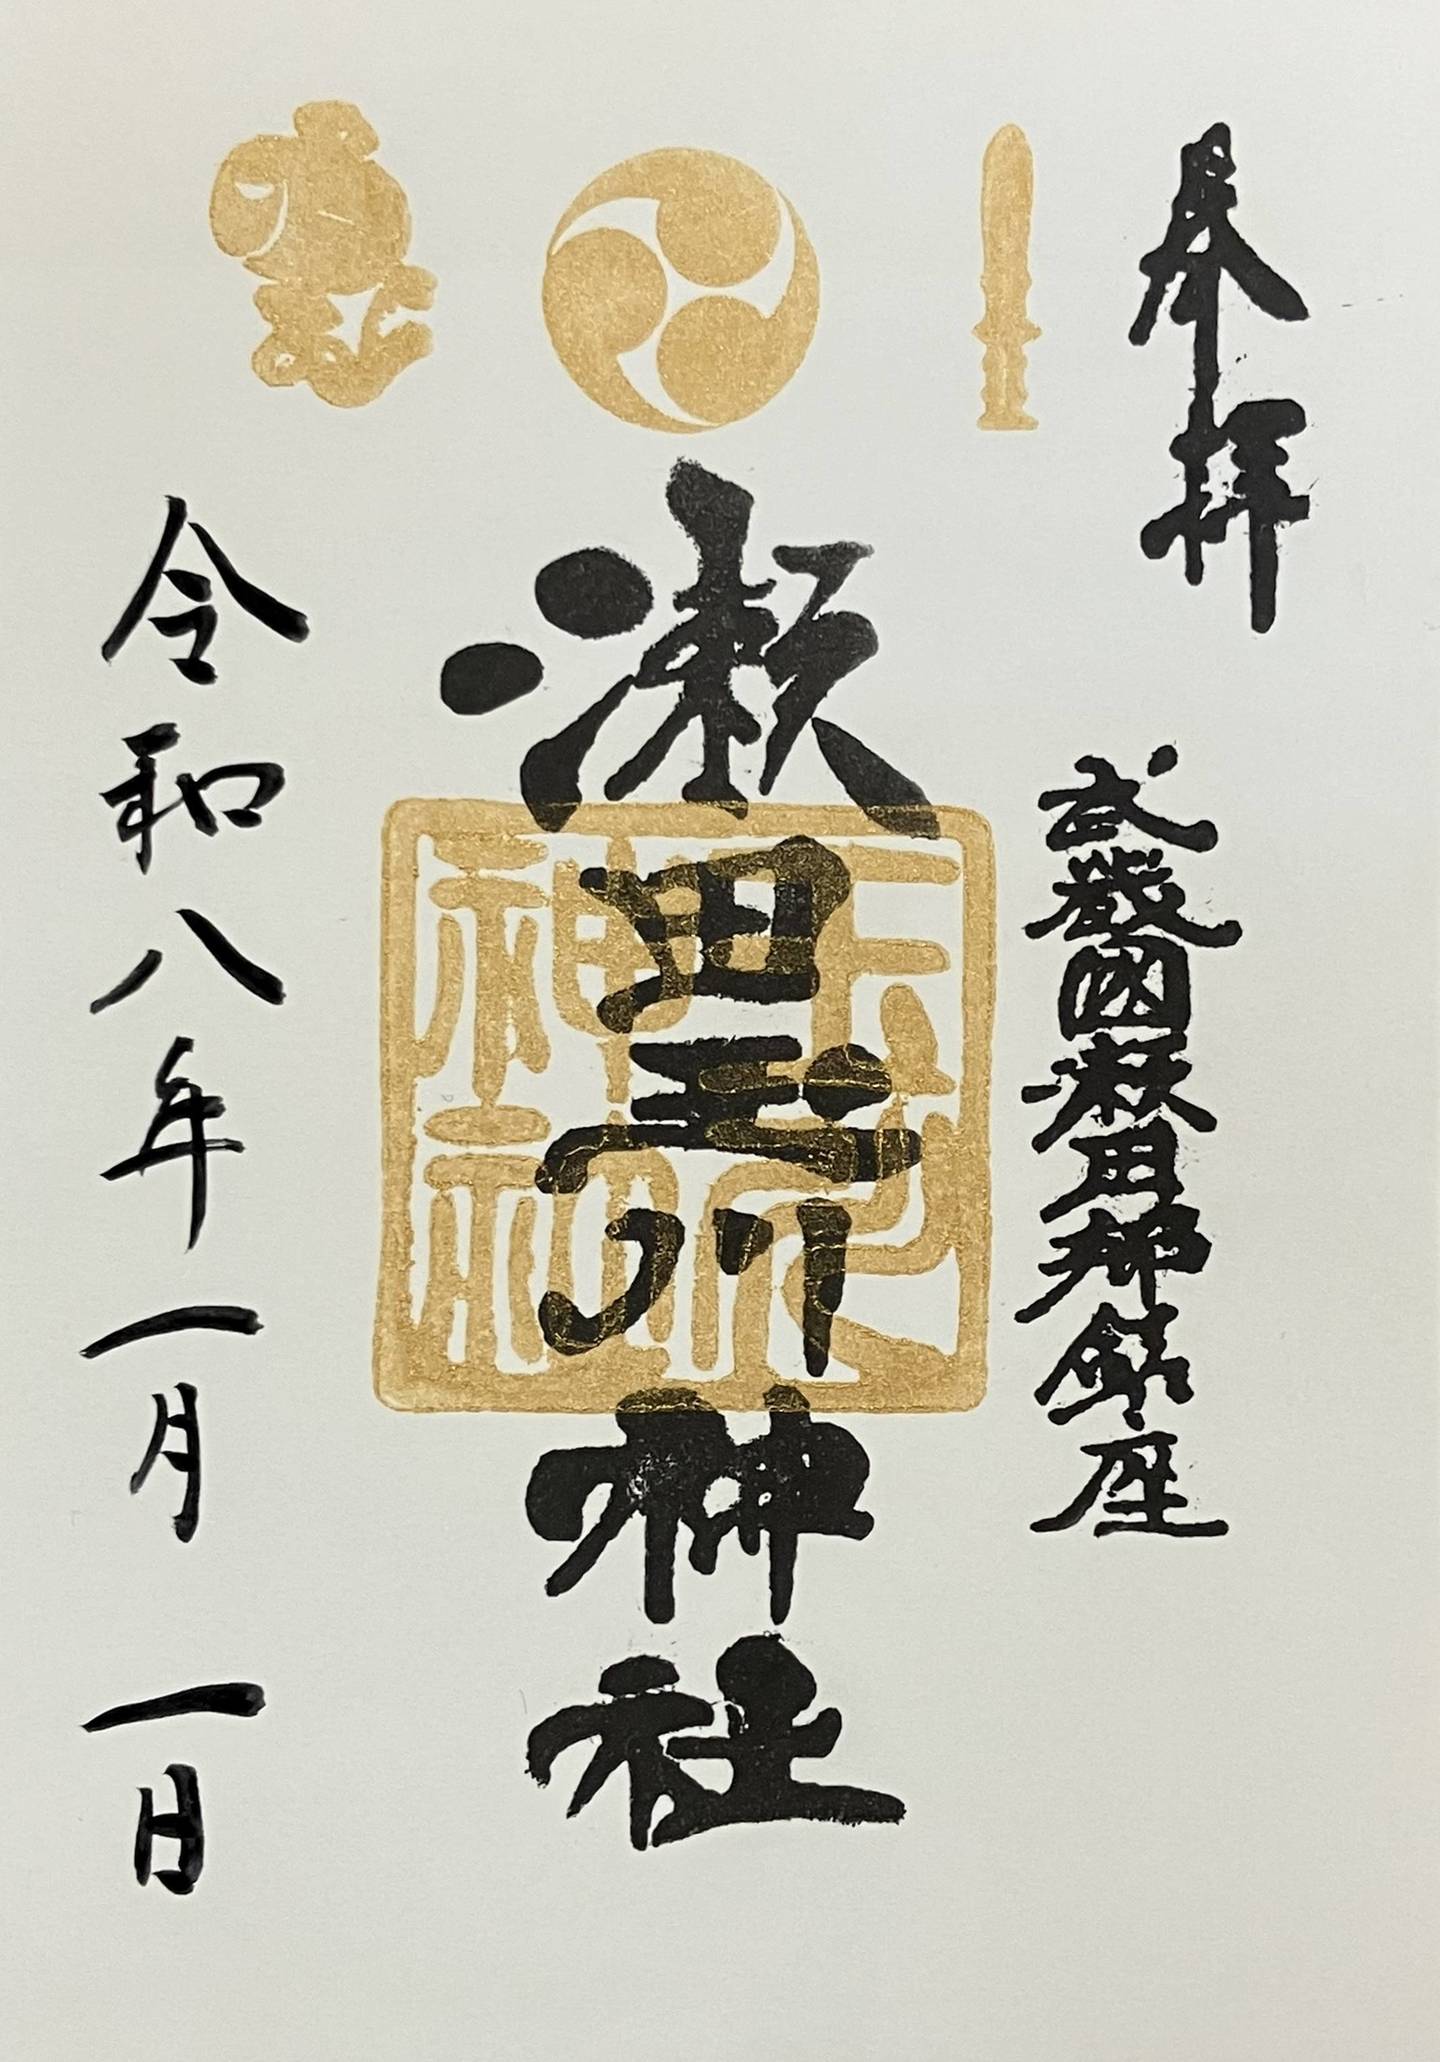 奉拝
武蔵國瀬田郷鎮座
瀬田玉川神社
玉川神社
令和八年一月一日